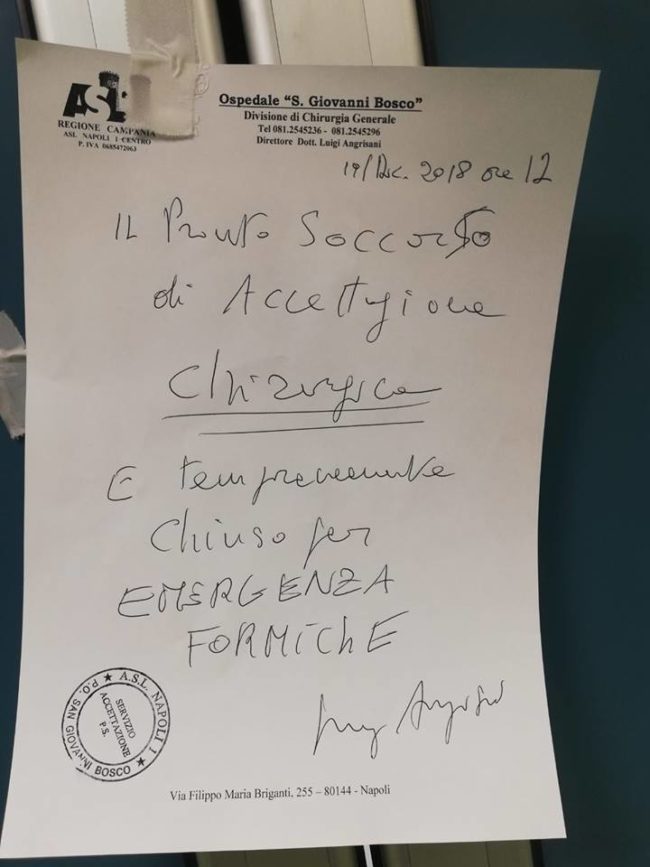 ASL
REGIONE CAMPANIA
ASL NAPOLI 1 CENTRO
P. IVA 0685472063
Ospedale “S. Giovanni Bosco”
Divisione di Chirurgia Generale
Tel 081.2545236 - 081.2545296
Direttore Dott. Luigi Angrisani
19/Dic. 2018 ore 12
IL Pronto Soccorso
di Accettazione
Chirurgica
E temporaneamente
Chiuso per
EMERGENZA
FORMIChE
A.S.L. NAPOLI 1 ★ P.O. SAN GIOVANNI BOSCO ★
SERVIZIO
ACCETTAZIONE
P.S.
Via Filippo Maria Briganti, 255 – 80144 - Napoli